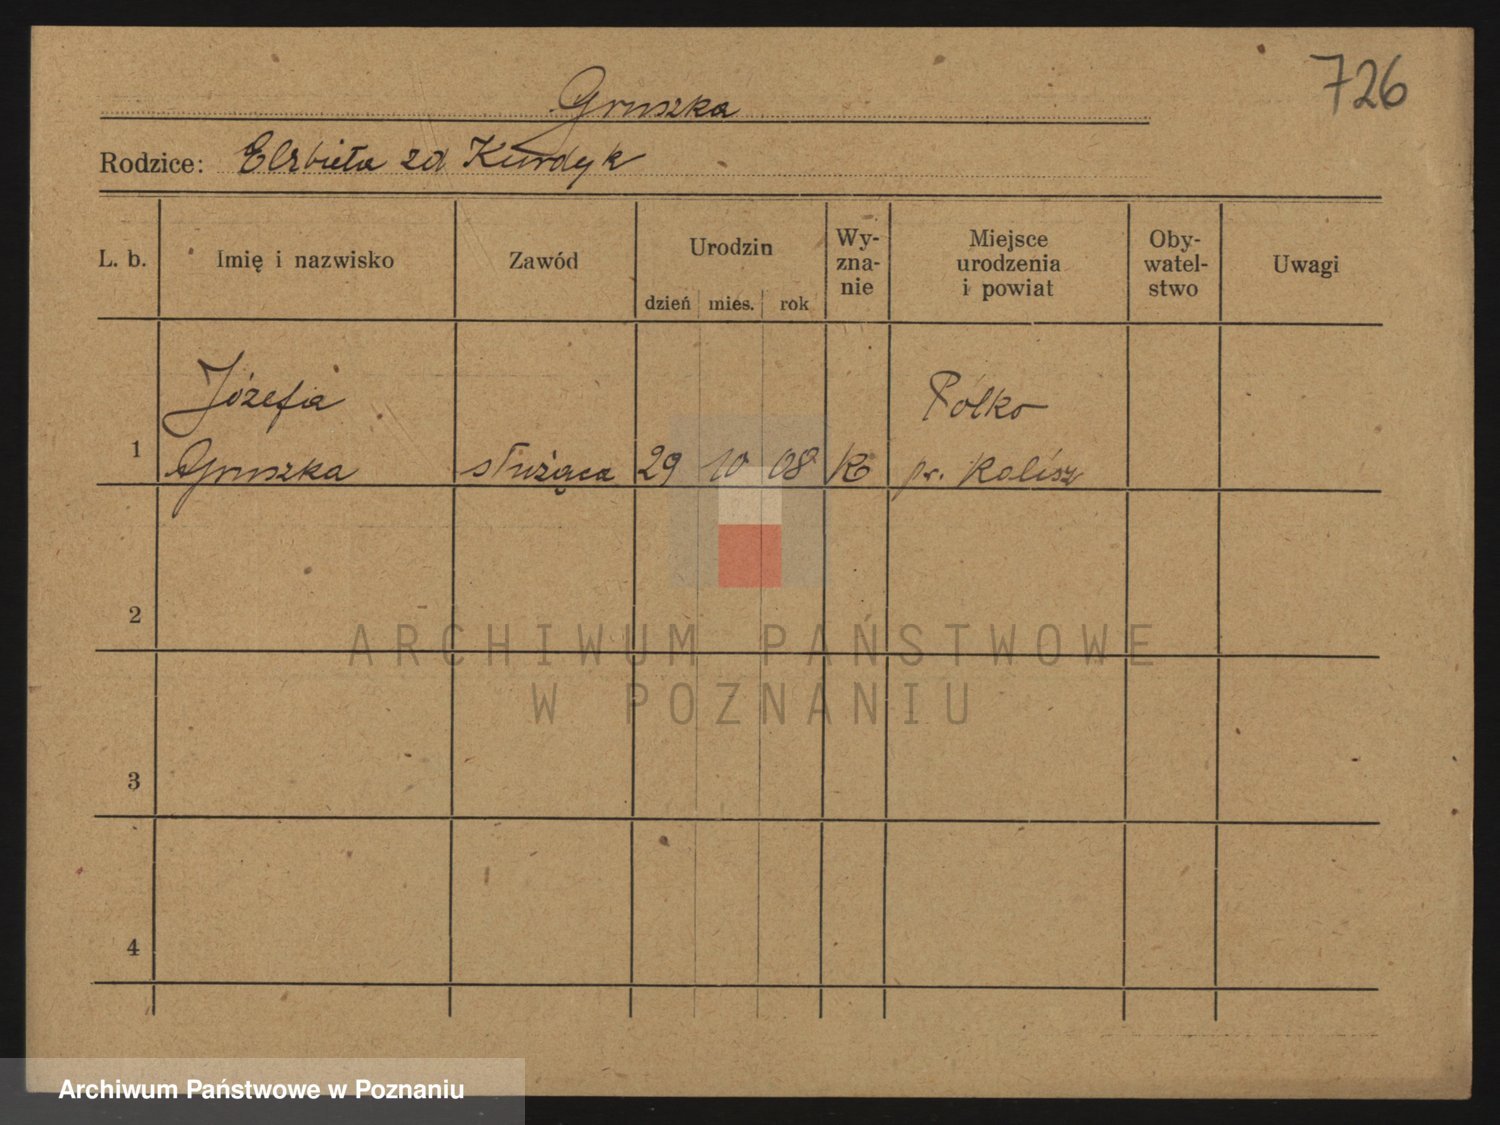 726
Gruszka
Rodzice: Elżbieta zd Kurdyk
L. b.
Imię i nazwisko
Zawód
Urodzin
dzień mies. rok
Wy-
zna-
nie
Miejsce
urodzenia
i powiat
Oby-
watel-
stwo
Uwagi
1
Józefa
Gruszka
służąca
29 10 08
K
Polko
pr. Kalisz
2
3
4
ARCHIWUM PAŃSTWOWE
W POZNANIU
Archiwum Państwowe w Poznaniu